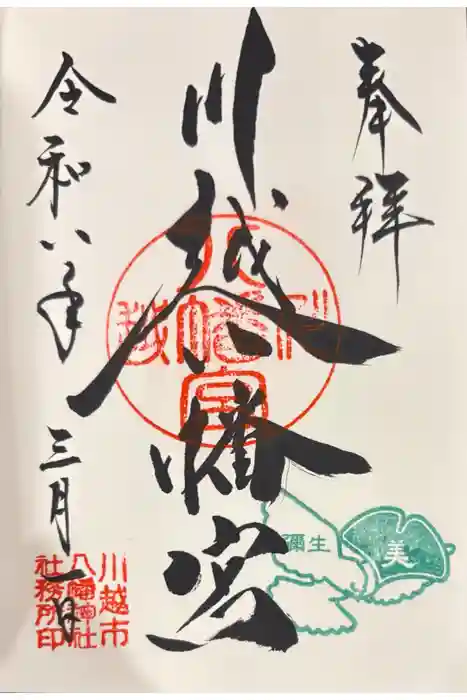 奉拝
川越八幡宮
川越
八幡宮
令和八年三月一日
川越市
八幡神社
社務所印
彌生
美